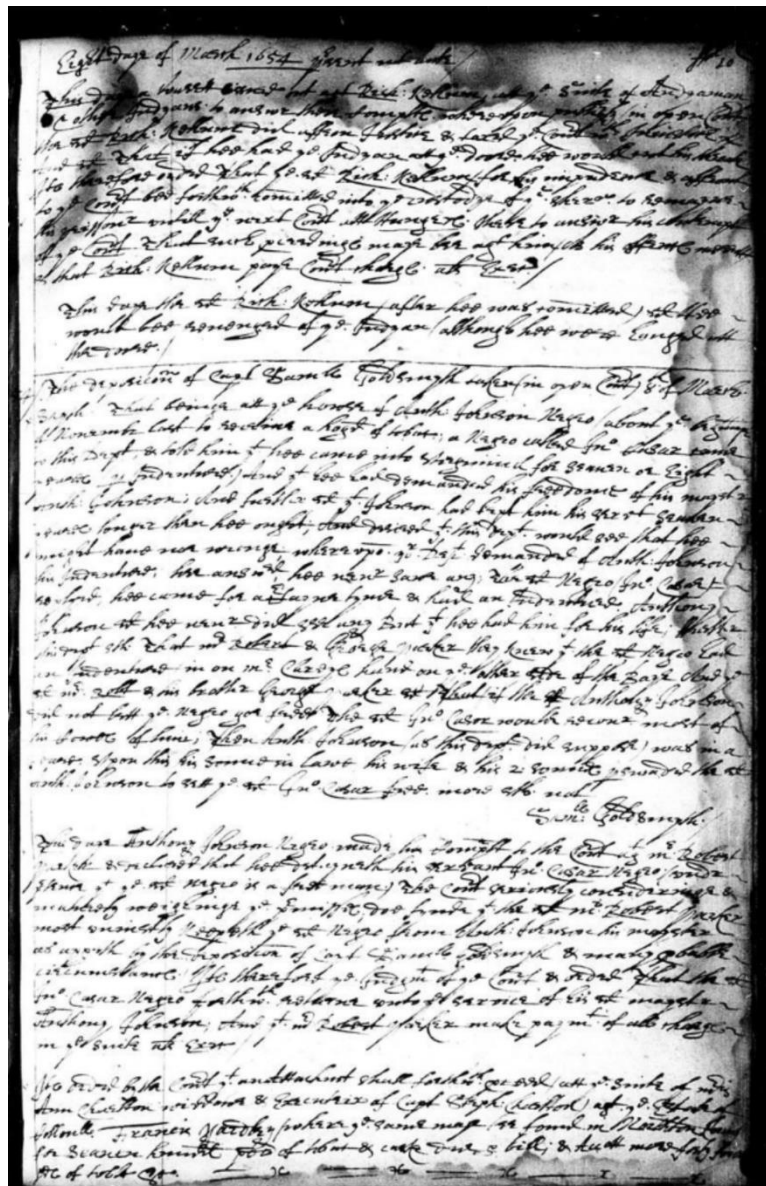 Eight daye of March 1654 present
fol 10
This day Rich: Kellum att ye suite of Andiaman
& other Indyans to answer their Complt whereupon in open Court
the sd Rich: Kellum did
sd That if hee had ye Indyan att ye doore hee would
Its therefore ordrd That ye sd Rich: Kellum for his impudence &
to ye Court bee forthwth comitted into ye custody of ye Sherr: to remayne
his prissonr untill ye next Court att Hungers there to answer his contempt
of ye Court That such pceedings maye bee
& that Rich: Kellum paye Court charges als Exec
This daye the sd Rich: Kellum (after hee was comitted) sd Hee
would bee revenged of ye Indyan although hee were hanged att
the doore
The deposicon of Capt Samll Goldsmyth taken (in open Court) 8th of March
Sayth That beinge att ye howse of Anth: Johnson Negro (about ye beginninge
of Novembr last to receive a hogd of tobac) a Negro called Jno Casar came
to this Dept & told him yt hee came into Virginia for seaven or Eight
yeares (p Indenture) And yt hee had demanded his freedome of his mayster
Anth: Johnson; And further sd yt Johnson had kept him his servt seaven
yeares longer than hee ought, And desired yt this Dept would see that hee
might have noe wronge whereupon ye Dept demanded of Anth: Johnson
his Indenture, hee answd, hee never sawe any; The sd Negro (Jno Casar)
replyed, hee came for a certayne tyme & had an Indenture Anthony
Johnson sd hee never did see any But yt hee had him for his life; Further
this dept sth That mr Robert & George Parker they knew yt the sd Negro had
an Indenture in on mr Carye hund on ye other side of the Baye And ye
sd mr Robt & his brother George Parker sd That if the sd Anthony Johnson
did not lett ye Negro goe free The sd Jno Casor would recovr most of
his Cowes of him; Then Anth: Johnson (as this dept did suppose) was in a
feare. Upon this his Sonne in lawe his wife & his 2 sonnes pswaded the sd
Anth: Johnson to sett ye sd Jno Casar free more sth not
Samll Goldsmyth
This daye Anthony Johnson Negro made his Complt to the Court agt mr Robert
Parker & declared that hee detayneth his servant Jno Casar Negro (undr
ptence yt ye sd Negro is a free man) The Court seriously consideringe &
maturely weighinge ye pmisses, doe fynde yt the sd mr Robert Parker
most unjustly keepeth ye sd Negro from Anth: Johnson his mayster
as appeth by the deposicon of Capt Samll Goldsmyth & many pbable
circumstances. Its therefore ye Judgmt of ye Court & ordrd That the sd
Jno Casar Negro forthwth returne unto ye service of his sd mayster
Anthony Johnson; And yt mr Robert Parker make paymt of all charges
in ye suite als Exec
Its ordrd by the Court yt an Attachmt shall forthwth pceed (att ye suite of mrs
Ann Charlton widdowe & Executrix of Capt Steph: Charlton) agt ye Estate of
Collonll Francis Yardley (where ye same may be found in Northton County
for Seaven hundrd pds of tobac & caske due p bill; & Acct more